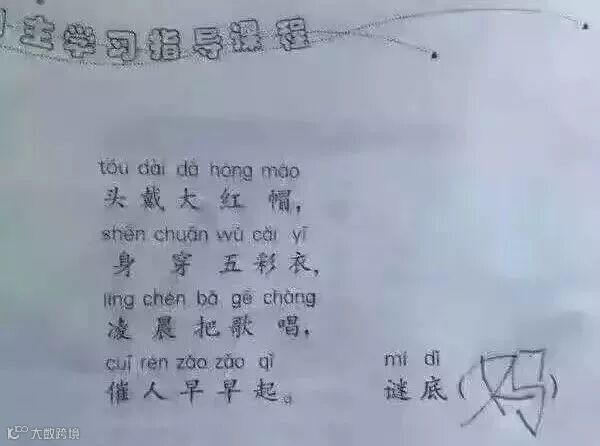 主学习指导课程
tóu dài dà hóng mào
头戴大红帽，
shēn chuān wǔ cǎi yī
身穿五彩衣，
líng chén bǎ gē chàng
凌晨把歌唱，
cuī rén zǎo zǎo qǐ
催人早早起。
mí dǐ
谜底（妈）
大数跨境